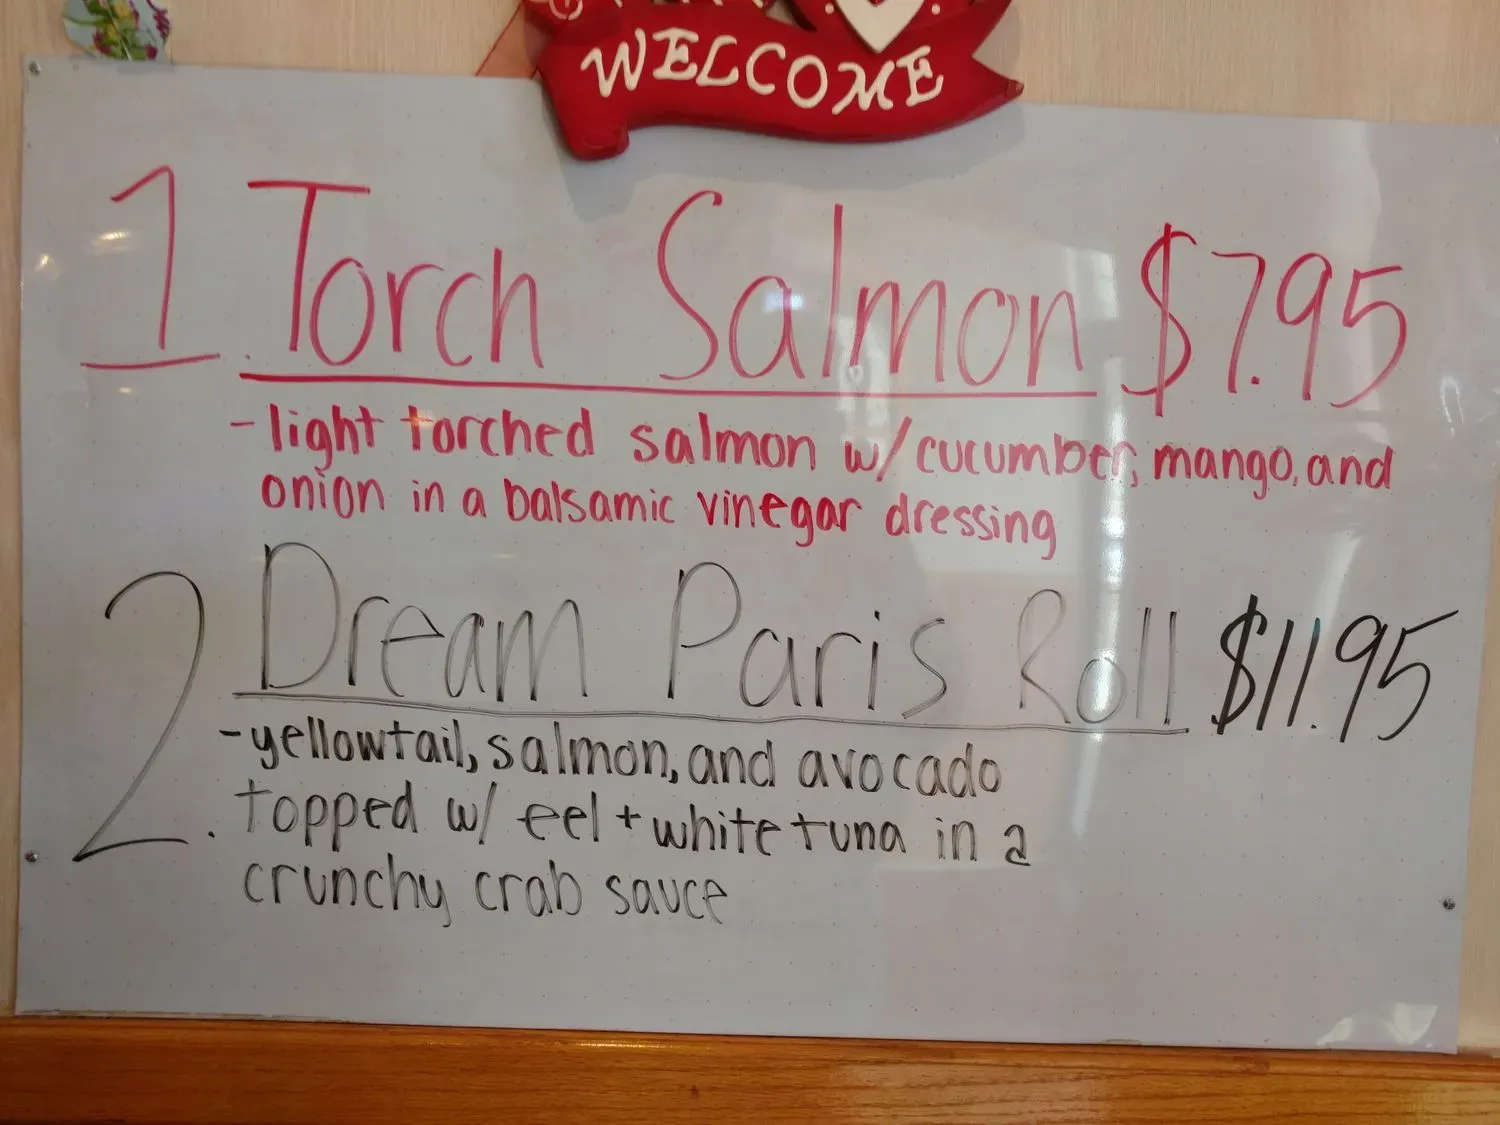 WELCOME
1. Torch Salmon $7.95
-light torched salmon w/cucumber, mango, and
onion in a balsamic vinegar dressing
2. Dream Paris Roll $11.95
-yellowtail, salmon, and avocado
topped w/ eel + white tuna in a
crunchy crab sauce